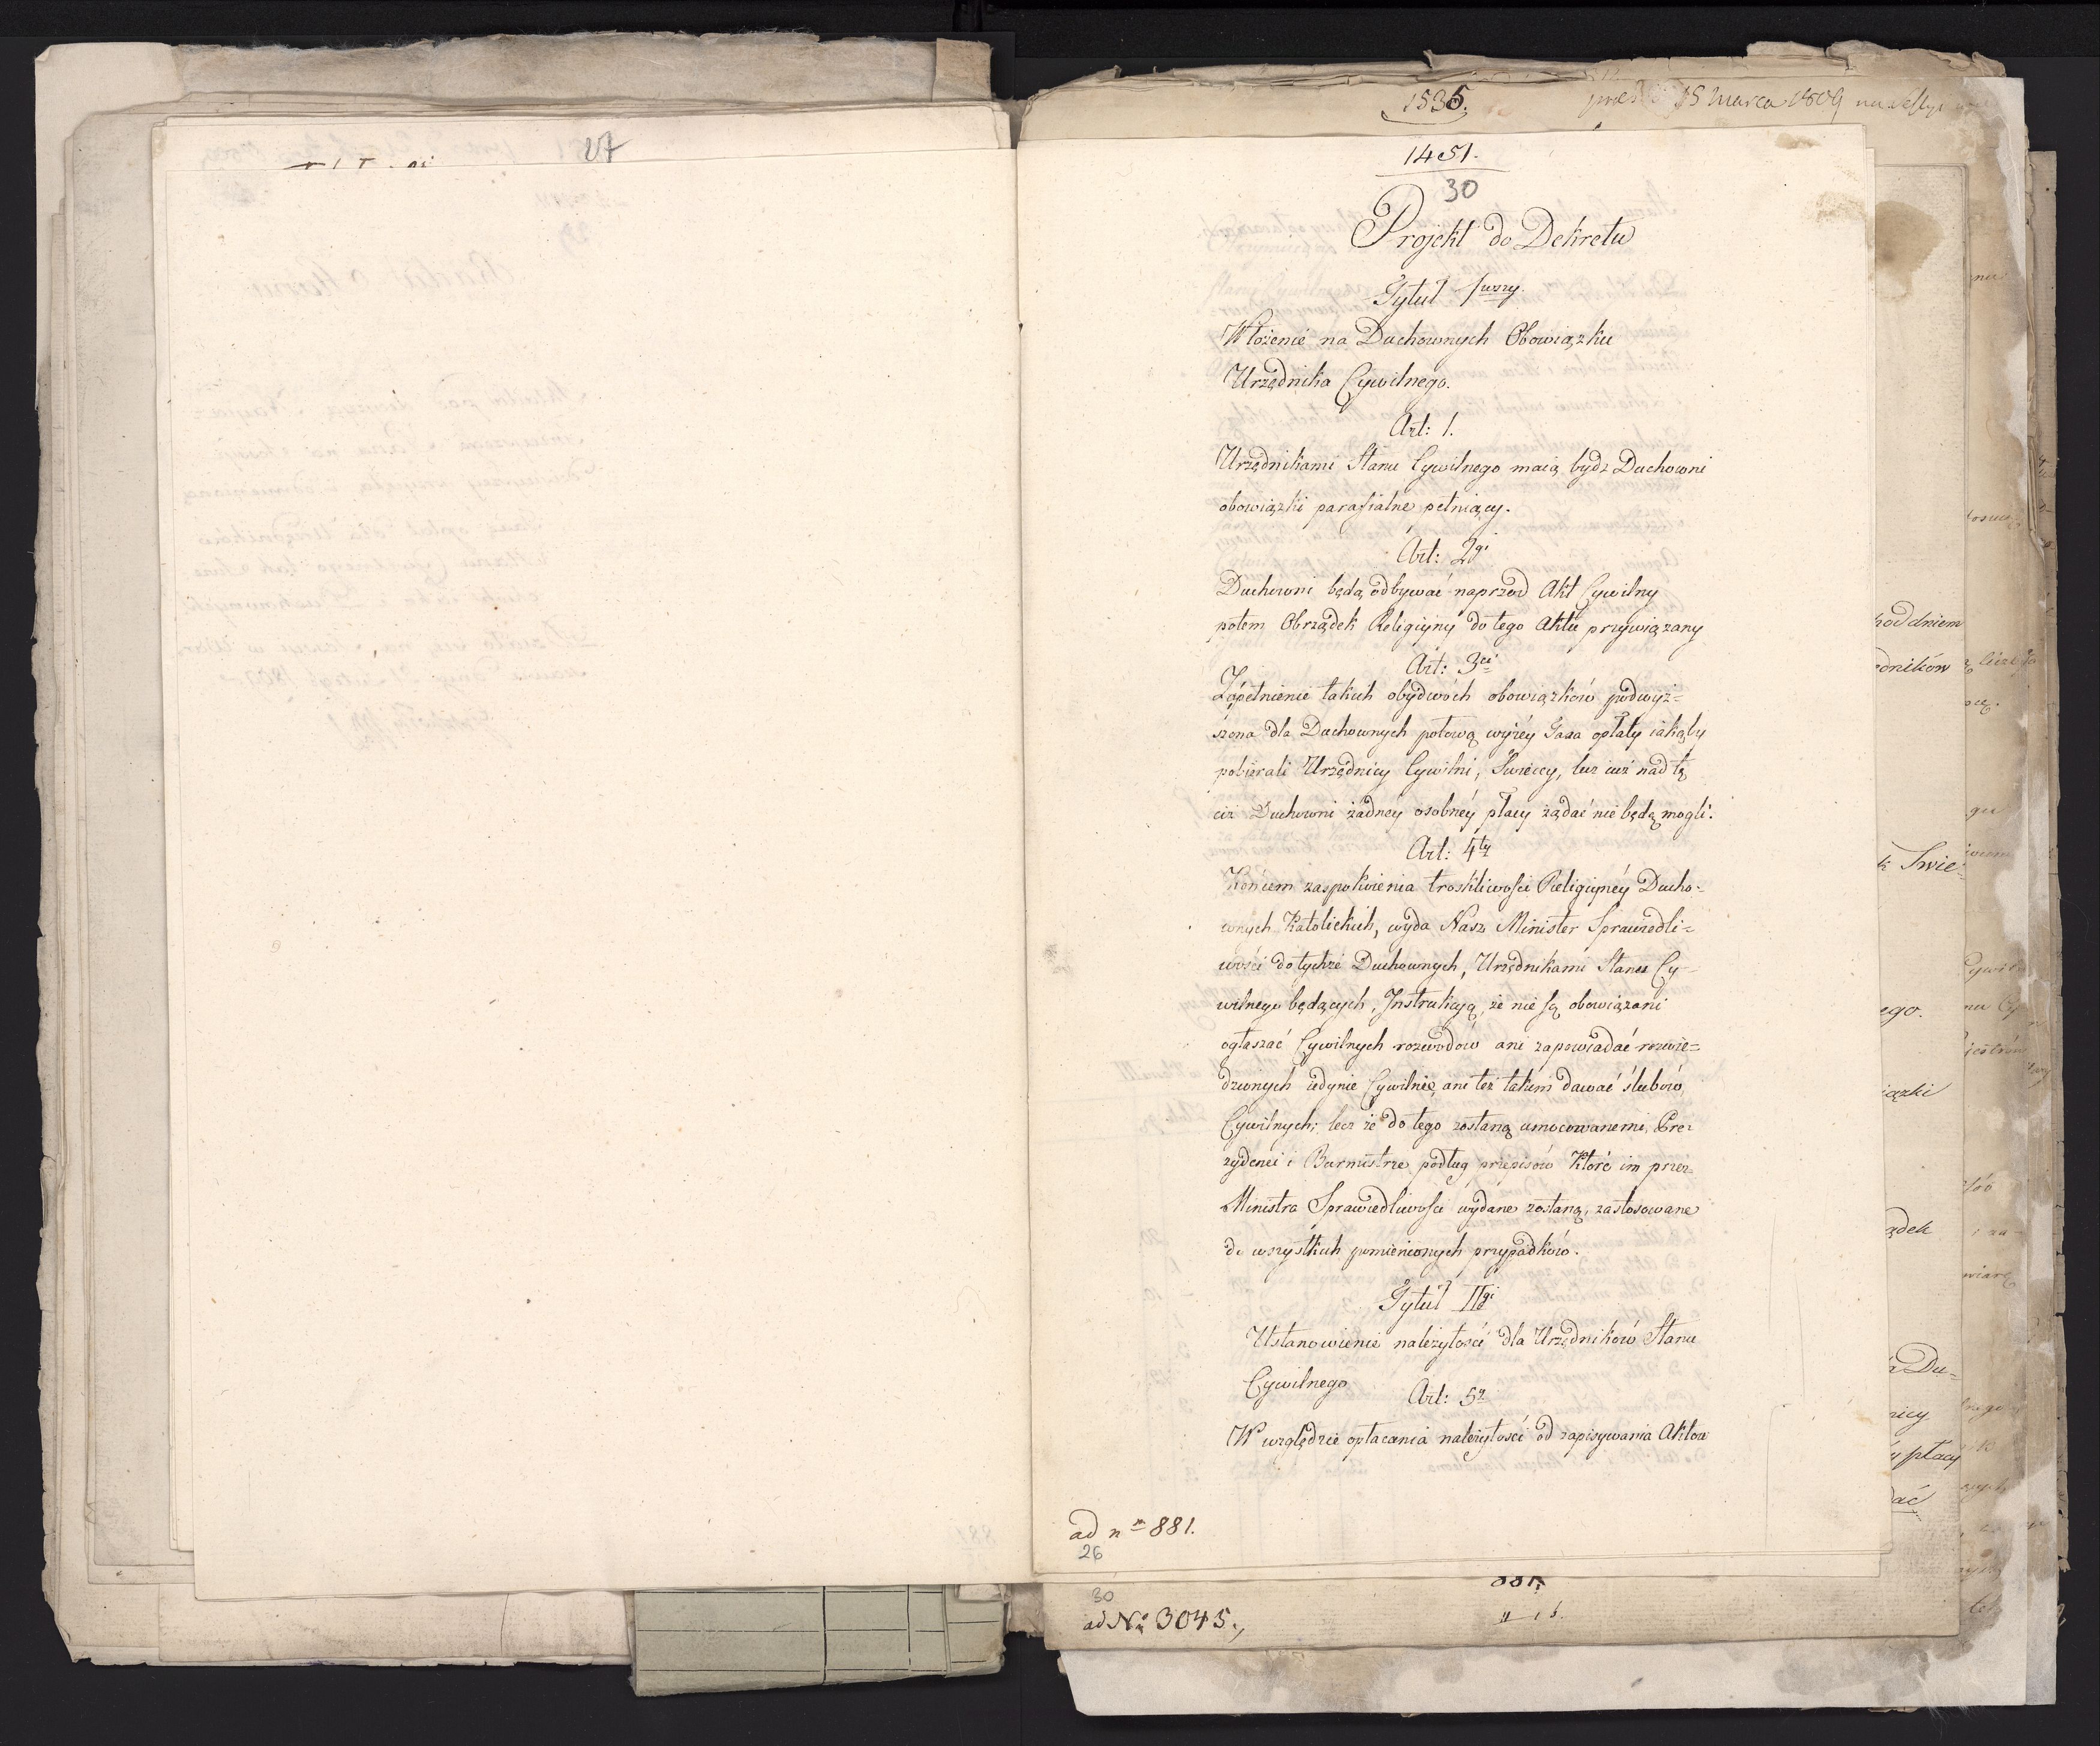 27
1535.
15 Marca 1809
1451.
30
Projekt do Dekretu
Tytuł 1wszy.
Włożenie na Duchownych Obowiązku
Urzędnika Cywilnego.
Art: 1.
Urzędnikami Stanu Cywilnego maią bydz Duchowni
obowiązki parafialne pełniący.
Art: 2gi
Duchowni będą odbywać naprzod Akt Cywilny
potem Obrządek Religiyny do tego Aktu przywiązany
Art: 3ci
Zapełnienie takich obydwóch obowiązków podwyż=
szona dla Duchownych połową wyżéy Taxa opłaty iakąby
pobierali Urzędnicy Cywilni, Swieccy, lecz iuż nad tę
ciż Duchowni żadnéy osobnéy płacy żądać nie będą mogli.
Art: 4ty
Końcem zaspokoienia troskliwości Religiynéy Ducho=
wnych Katolickich, wyda Nasz Minister Sprawiedli=
wości do tychże Duchownych, Urzędnikami Stanu Cy=
wilnego będących, Instrukcyą, że nie są obowiązani
ogłaszać Cywilnych rozwodów ani zapowiadać rozwie=
dzionych iedynie Cywilnie, ani też takim dawać ślubów
Cywilnych; lecz że do tego zostaną umocowanemi, Pre=
zydenci i Burmistrze podług przepisów które im przez
Ministra Sprawiedliwości wydane zostaną, zastosowane
do wszystkich pomienionych przypadków.
Tytuł IIgi
Ustanowienie należytości dla Urzędników Stanu
Cywilnego
Art: 5ty
W względzie opłacania należytości od zapisywania Aktow
ad nm 881.
26
30
ad No 3045.
881.
hod dniem
ędników
k Swie=
ego.
iązki
ądek
a Du=
nicy
y płacy
dać